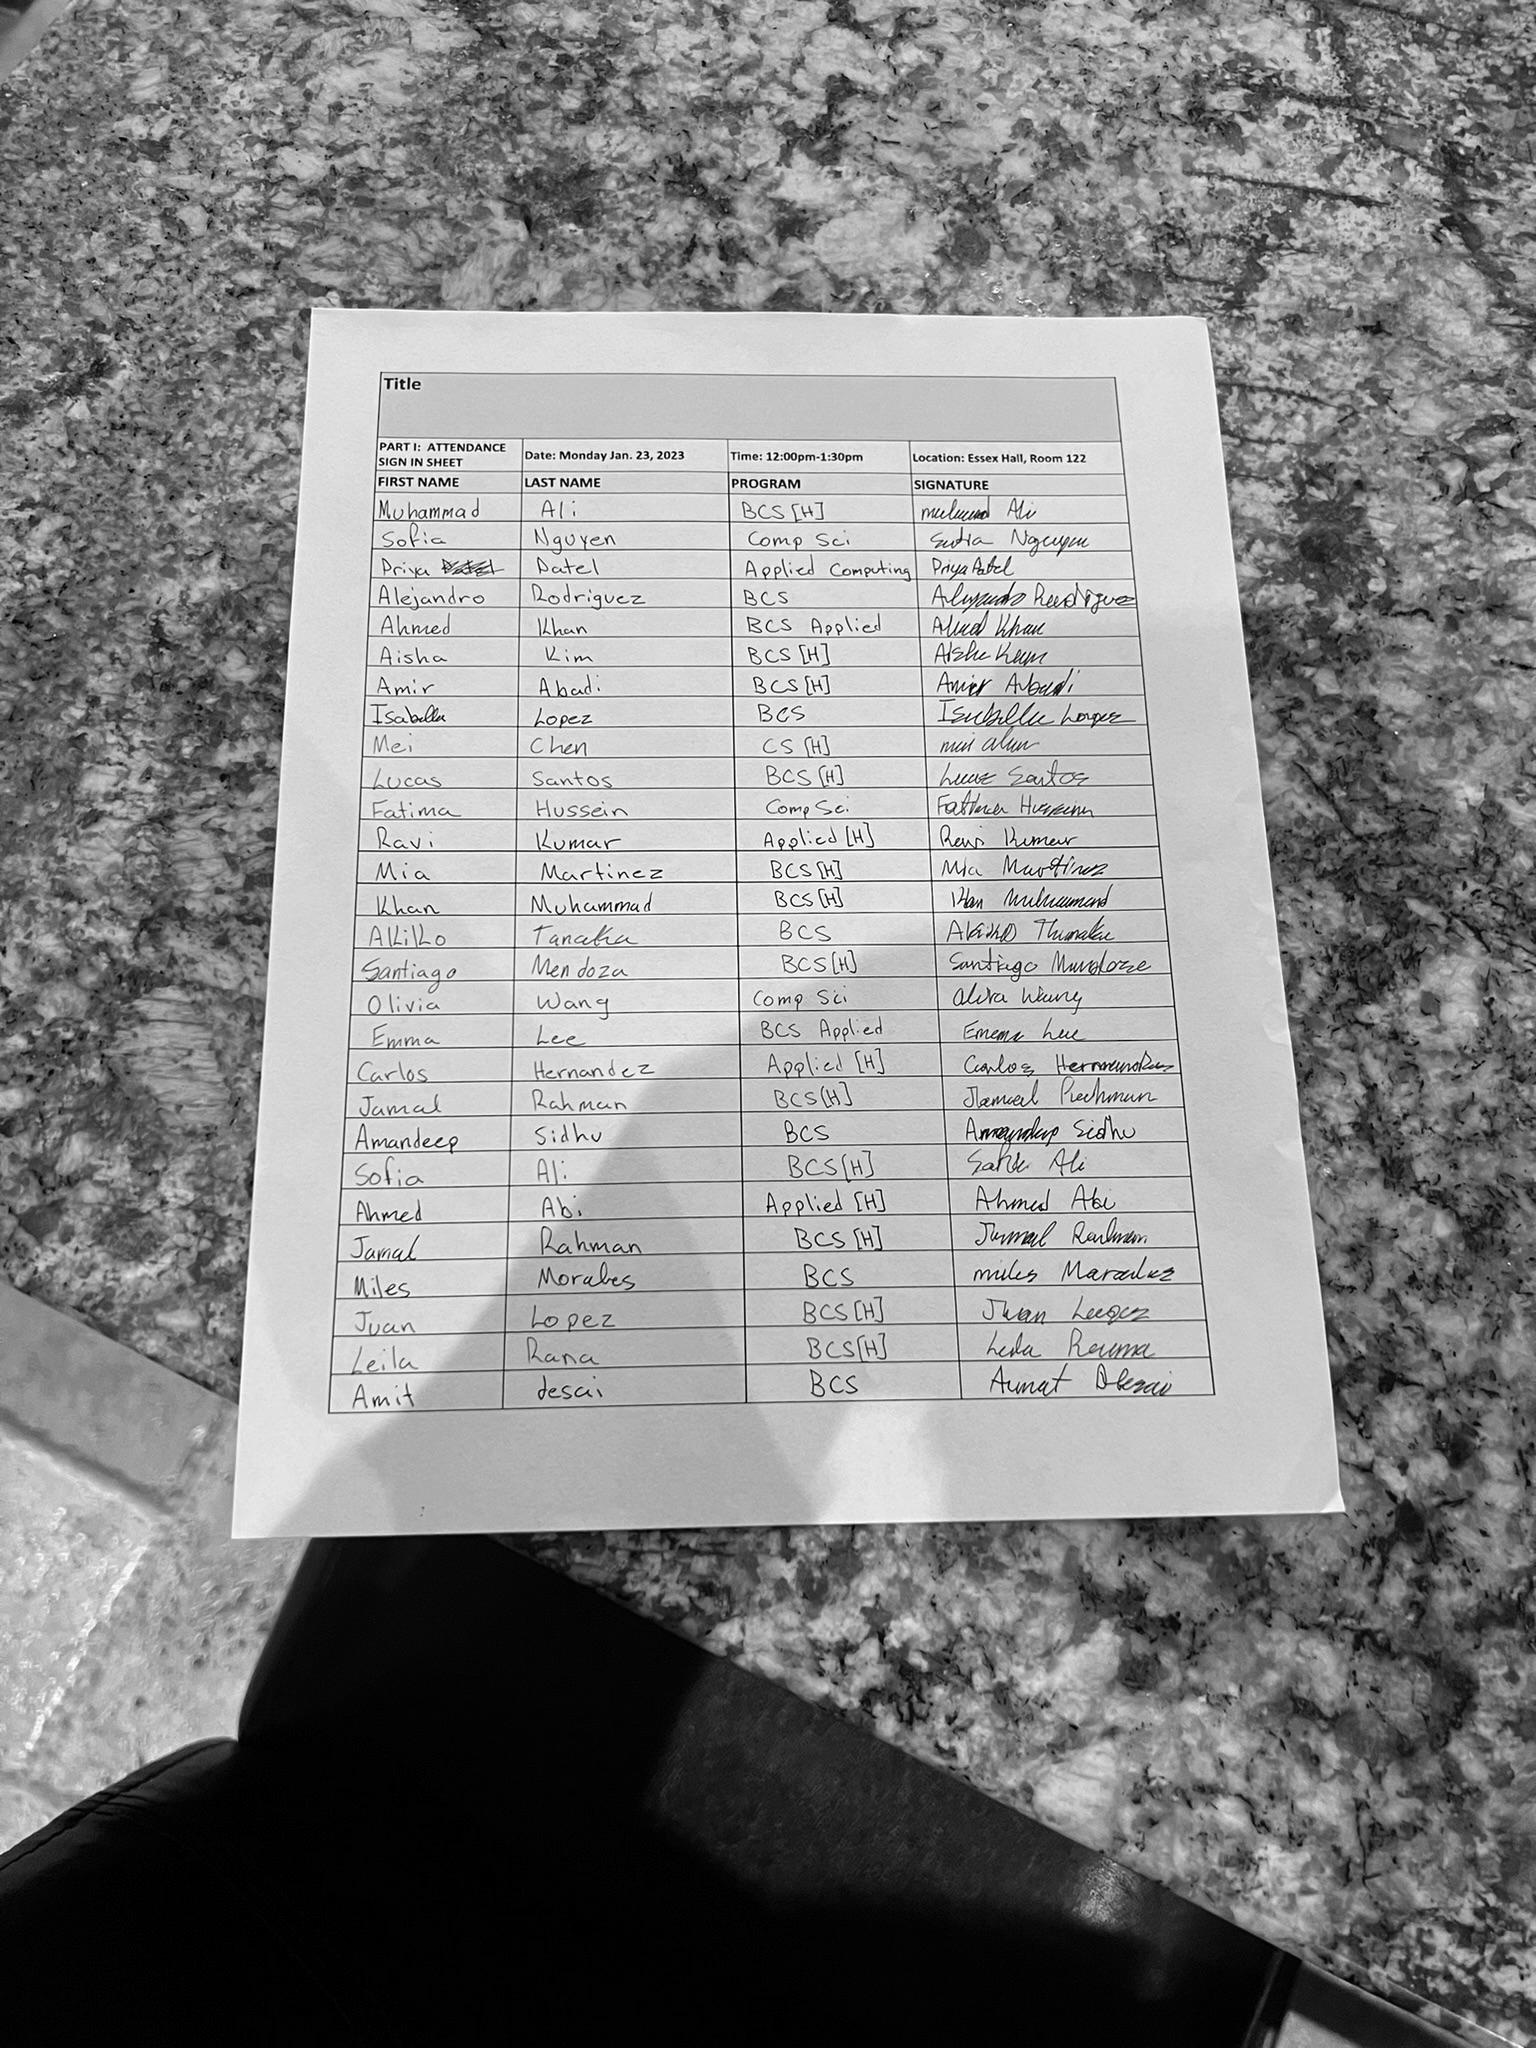 Title
PART I: ATTENDANCE SIGN IN SHEET Date: Monday Jan. 23, 2023 Time: 12:00pm-1:30pm Location: Essex Hall, Room 122
FIRST NAME LAST NAME PROGRAM SIGNATURE
Muhammad Ali BCS [H] Ali
Sofia Nguyen Comp Sci Nguyen
Priya Patel Applied Computing Priya Patel
Alejandro Rodriguez BCS Alejandro Rodriguez
Ahmed Khan BCS Applied Khan
Aisha Kim BCS [H]
Amir Abadi BCS [H] Amir Abadi
Isabella Lopez BCS Isabella Lopez
Mei Chen CS [H]
Lucas Santos BCS [H] Lucas Santos
Fatima Hussein Comp Sci Fatima Hussein
Ravi Kumar Applied [H] Ravi Kumar
Mia Martinez BCS [H] Mia Martinez
Khan Muhammad BCS [H]
Akiko Tanaka BCS
Santiago Mendoza BCS [H] Santiago
Olivia Wang Comp Sci
Emma Lee BCS Applied
Carlos Hernandez Applied [H] Carlos
Jamal Rahman BCS [H]
Amandeep Sidhu BCS Amandeep Sidhu
Sofia Ali BCS [H] Ali
Ahmed Abi Applied [H] Ahmed Abi
Jamal Rahman BCS [H] Jamal Rahman
Miles Morales BCS miles
Juan Lopez BCS [H] Juan
Leila Rana BCS [H]
Amit desai BCS